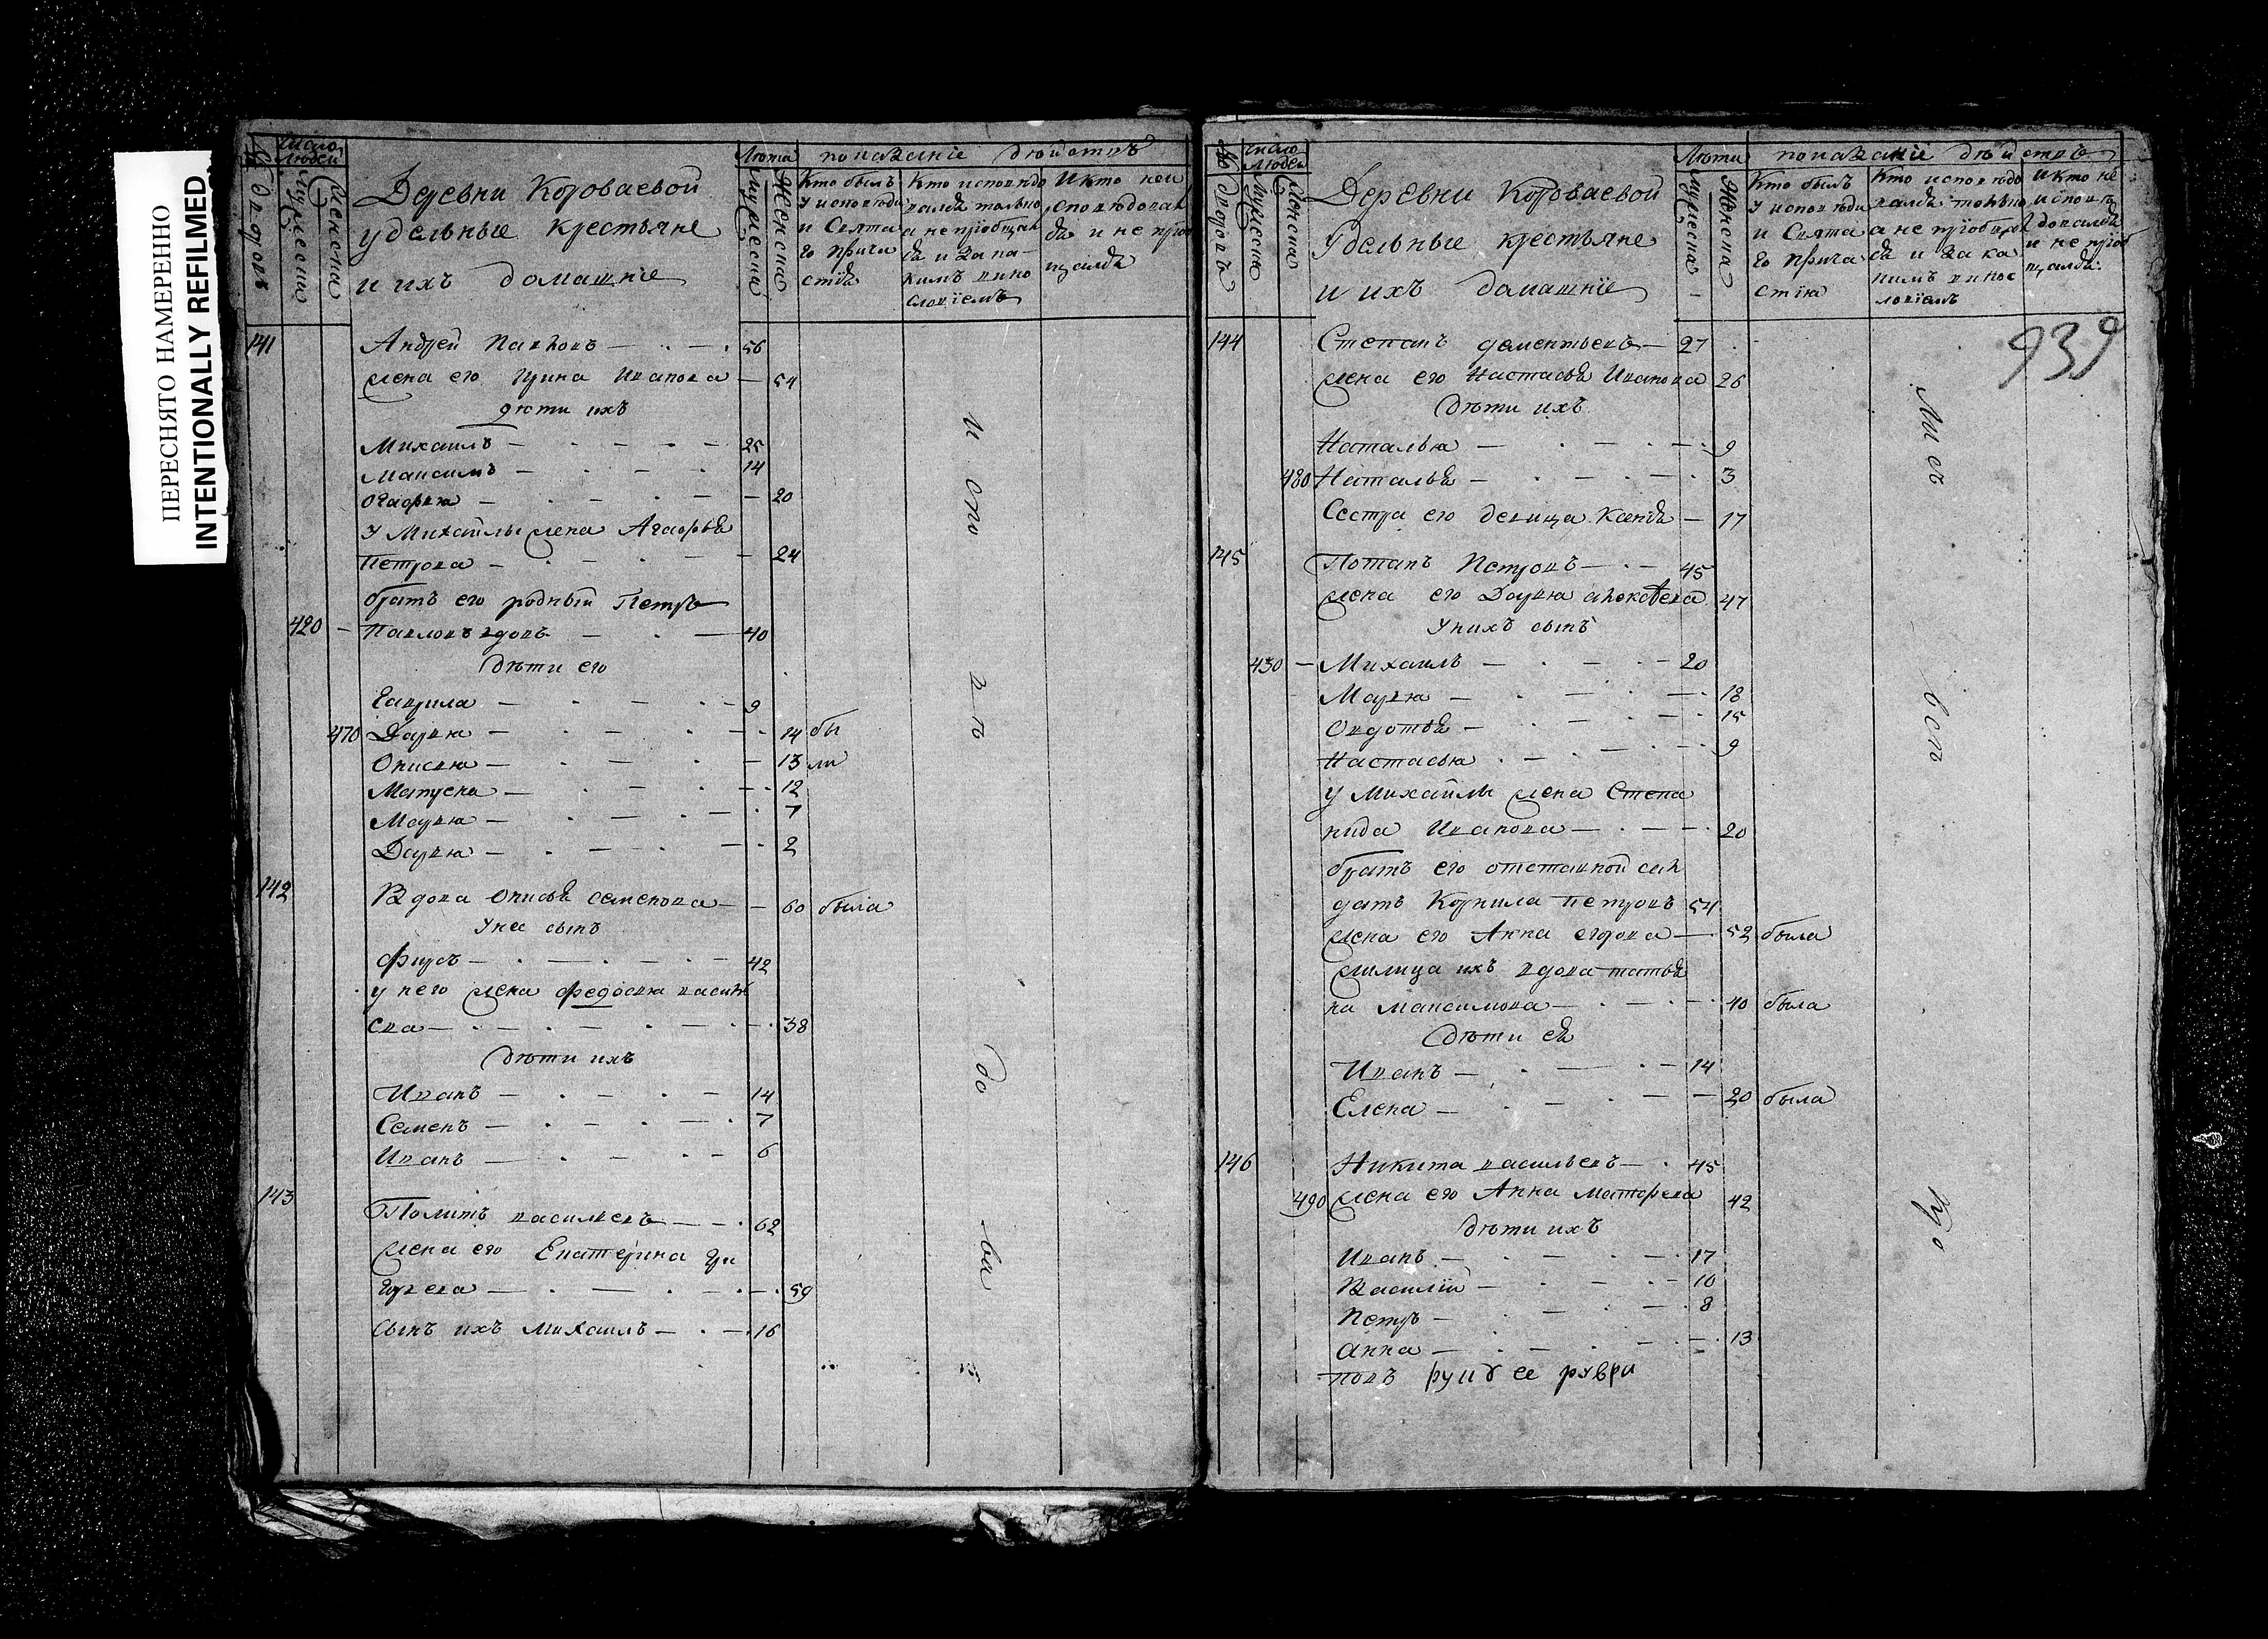 ПЕРЕСНЯТО НАМЕРЕННО
INTENTIONALLY REFILMED
Число Людей
Лѣта показаніе дѣйствъ
Мужеска
Женска
Деревни Короваевой
удельные крестьяне
и ихъ домашніе
Мужеска
Женска
Кто былъ
у исповѣди
и Свята
го прича
стія
Кто исповѣдо
вался только
а не пріобщал
ся и за ка-
кимъ вино
словіемъ
И кто неи
споведовал
ся и не прiоб
щался
141 Андрей Павловъ 56
жена его Ирина Иванова 54
дѣти ихъ
Михаилъ 25
Максимъ 14
Огафья 20
у Михайлы жена Агафья
Петрова 24
братъ его родный Петръ
420 Павловъ вдовъ 40
дѣти его
Гаврила 9
470 Дарья 14 бы
Онисья 13 ли
Матрена 12
Марья 7
Дарья 2
142 Вдова Онисья семенова 60 была
У нее сынъ
Фирсъ 42
у него жена Федосья василь
ева 38
дѣти ихъ
Иванъ 14
Семенъ 7
Иванъ 6
143 Политъ васильевъ 62
жена его Екатерина Гри
горьева 59
сынъ ихъ Михаилъ 16
И спо
вѣ
до
ва
Число Людей
Лѣта показаніе дѣйствъ
Мужеска
Женска
Деревни Короваевой
Удельные крестьяне
и ихъ домашніе
Мужеска
Женска
Кто былъ
у исповѣди
и Свята
го прича
стія
Кто исповѣдо
вался только
а не пріобщал
ся и за ка
кимъ винос
ловіемъ
и кто не
исповѣ
довался
и не пріоб
щался
939
144 Степанъ дементьевъ 27
жена его Настасья Иванова 26
дѣти ихъ
Наталья 9
480 Наталья 3
Сестра его девица Ксенія 17
145 Потапъ Петровъ 45
жена его Дарья алексѣева 47
У нихъ сынъ
430 Михаилъ 20
Марья 18
Овдотья 15
Настасья 9
у Михайлы жена Степа
нида Иванова 20
братъ его отставной сол
датъ Корнила петровъ 54
жена его Анна егорова 52 была
жилица ихъ вдова татья
на Максимова 40 была
дѣти ея
Иванъ 14
Елена 20 была
146 Никита васильевъ 45
490 жена его Анна Матфеева 42
дѣти ихъ
Иванъ 17
Василій 10
Петръ 8
анна 13